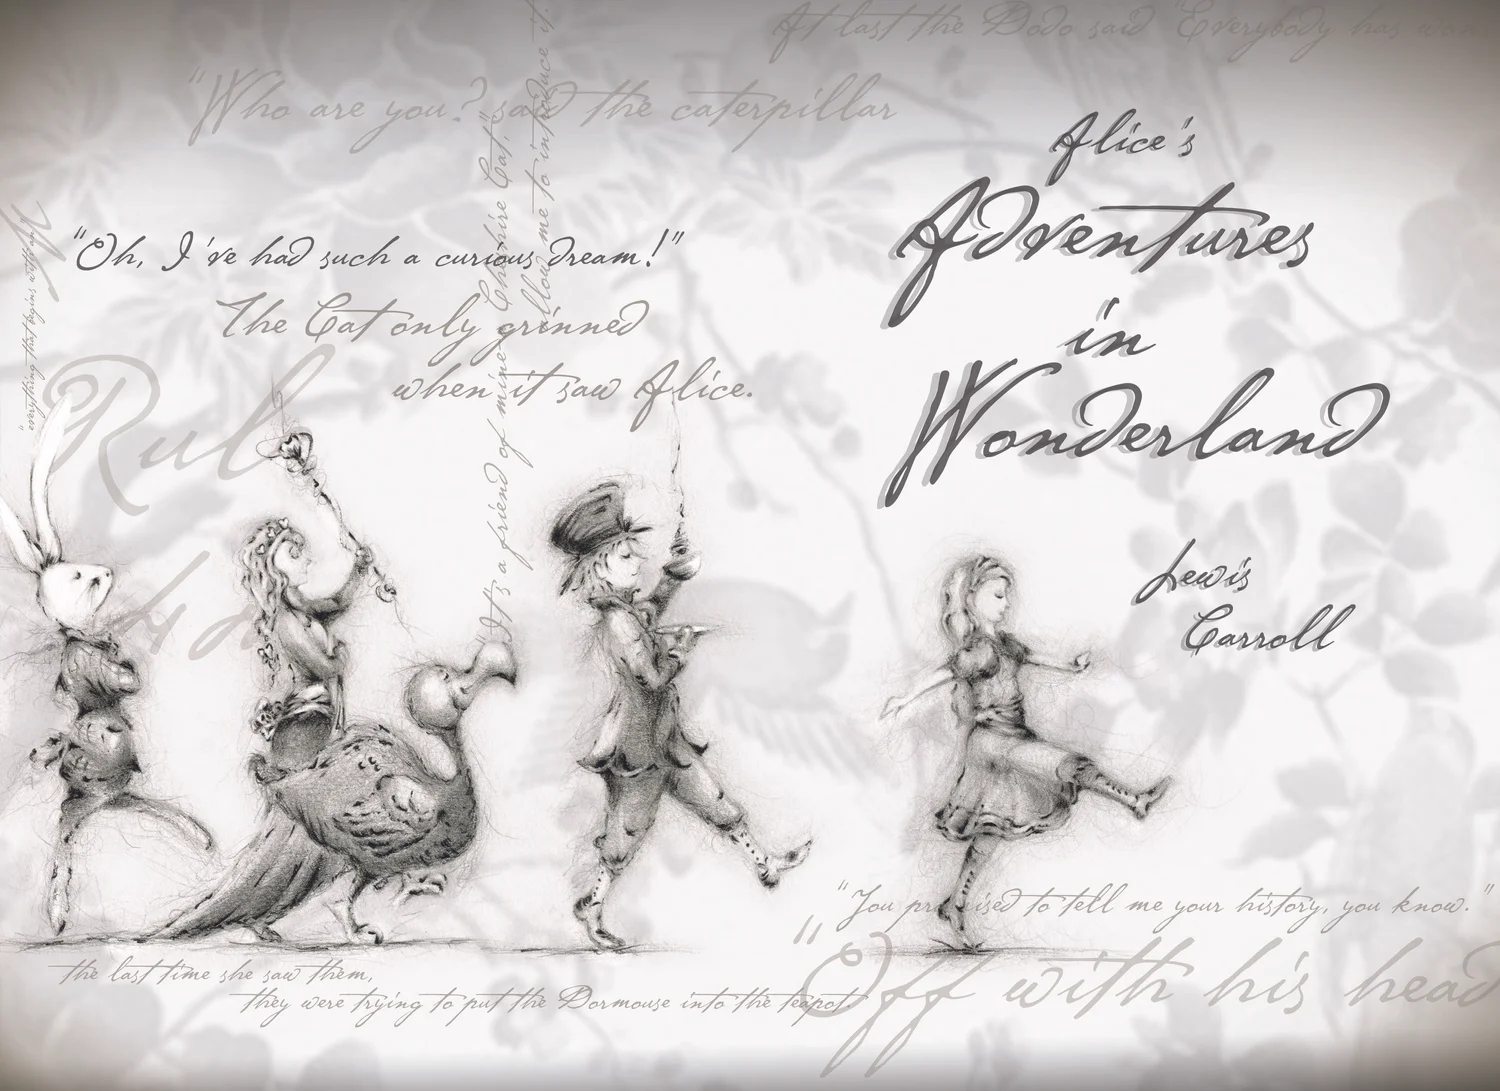 At last the Dodo said "Everybody has won
"Who are you?" said the caterpillar
Alice's
Adventures
in
Wonderland
Lewis
Carroll
"Oh, I've had such a curious dream!"
The Cat only grinned
when it saw Alice.
"It's a friend of mine - a Cheshire Cat,"
allow me to introduce it.
"everything that begins with an
M
Rul
42
"You promised to tell me your history, you know."
"Off with his head
the last time she saw them,
they were trying to put the Dormouse into the teapot